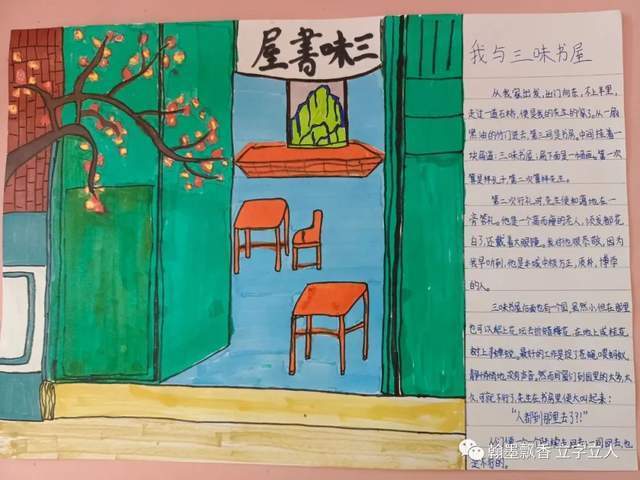 三味書屋
我与三味书屋
从我家出发,出门向东,不上半里,
走过一道石桥,便是我的先生的家了。从一扇
黑油的竹门进去,第三间是书房。中间挂着一
块扁道:三味书屋;扁下面是一幅画。第一次
算是拜孔子,第二次算拜先生。
第二次行礼时,先生便和蔼地在一
旁答礼。他是一个高而瘦的老人,须发都花
白了,还戴着大眼镜。我对他很恭敬,因为
我早听到,他是本城中极方正,质朴,博学
的人。
三味书屋后面也有一个园,虽然小,但在那里
也可以爬上花坛去折腊梅花,在地上或桂花
树上寻蝉蜕。最好的工作是捉了苍蝇喂蚂蚁,
静悄悄地没有声音。然而同窗们到园里的太多,太
久,可就不行了,先生在书房里便大叫起来:
“人都到那里去了?!”
人们便一个一个陆续走回去;一同回去,也
是不行的。
翰墨飘香 立字立人